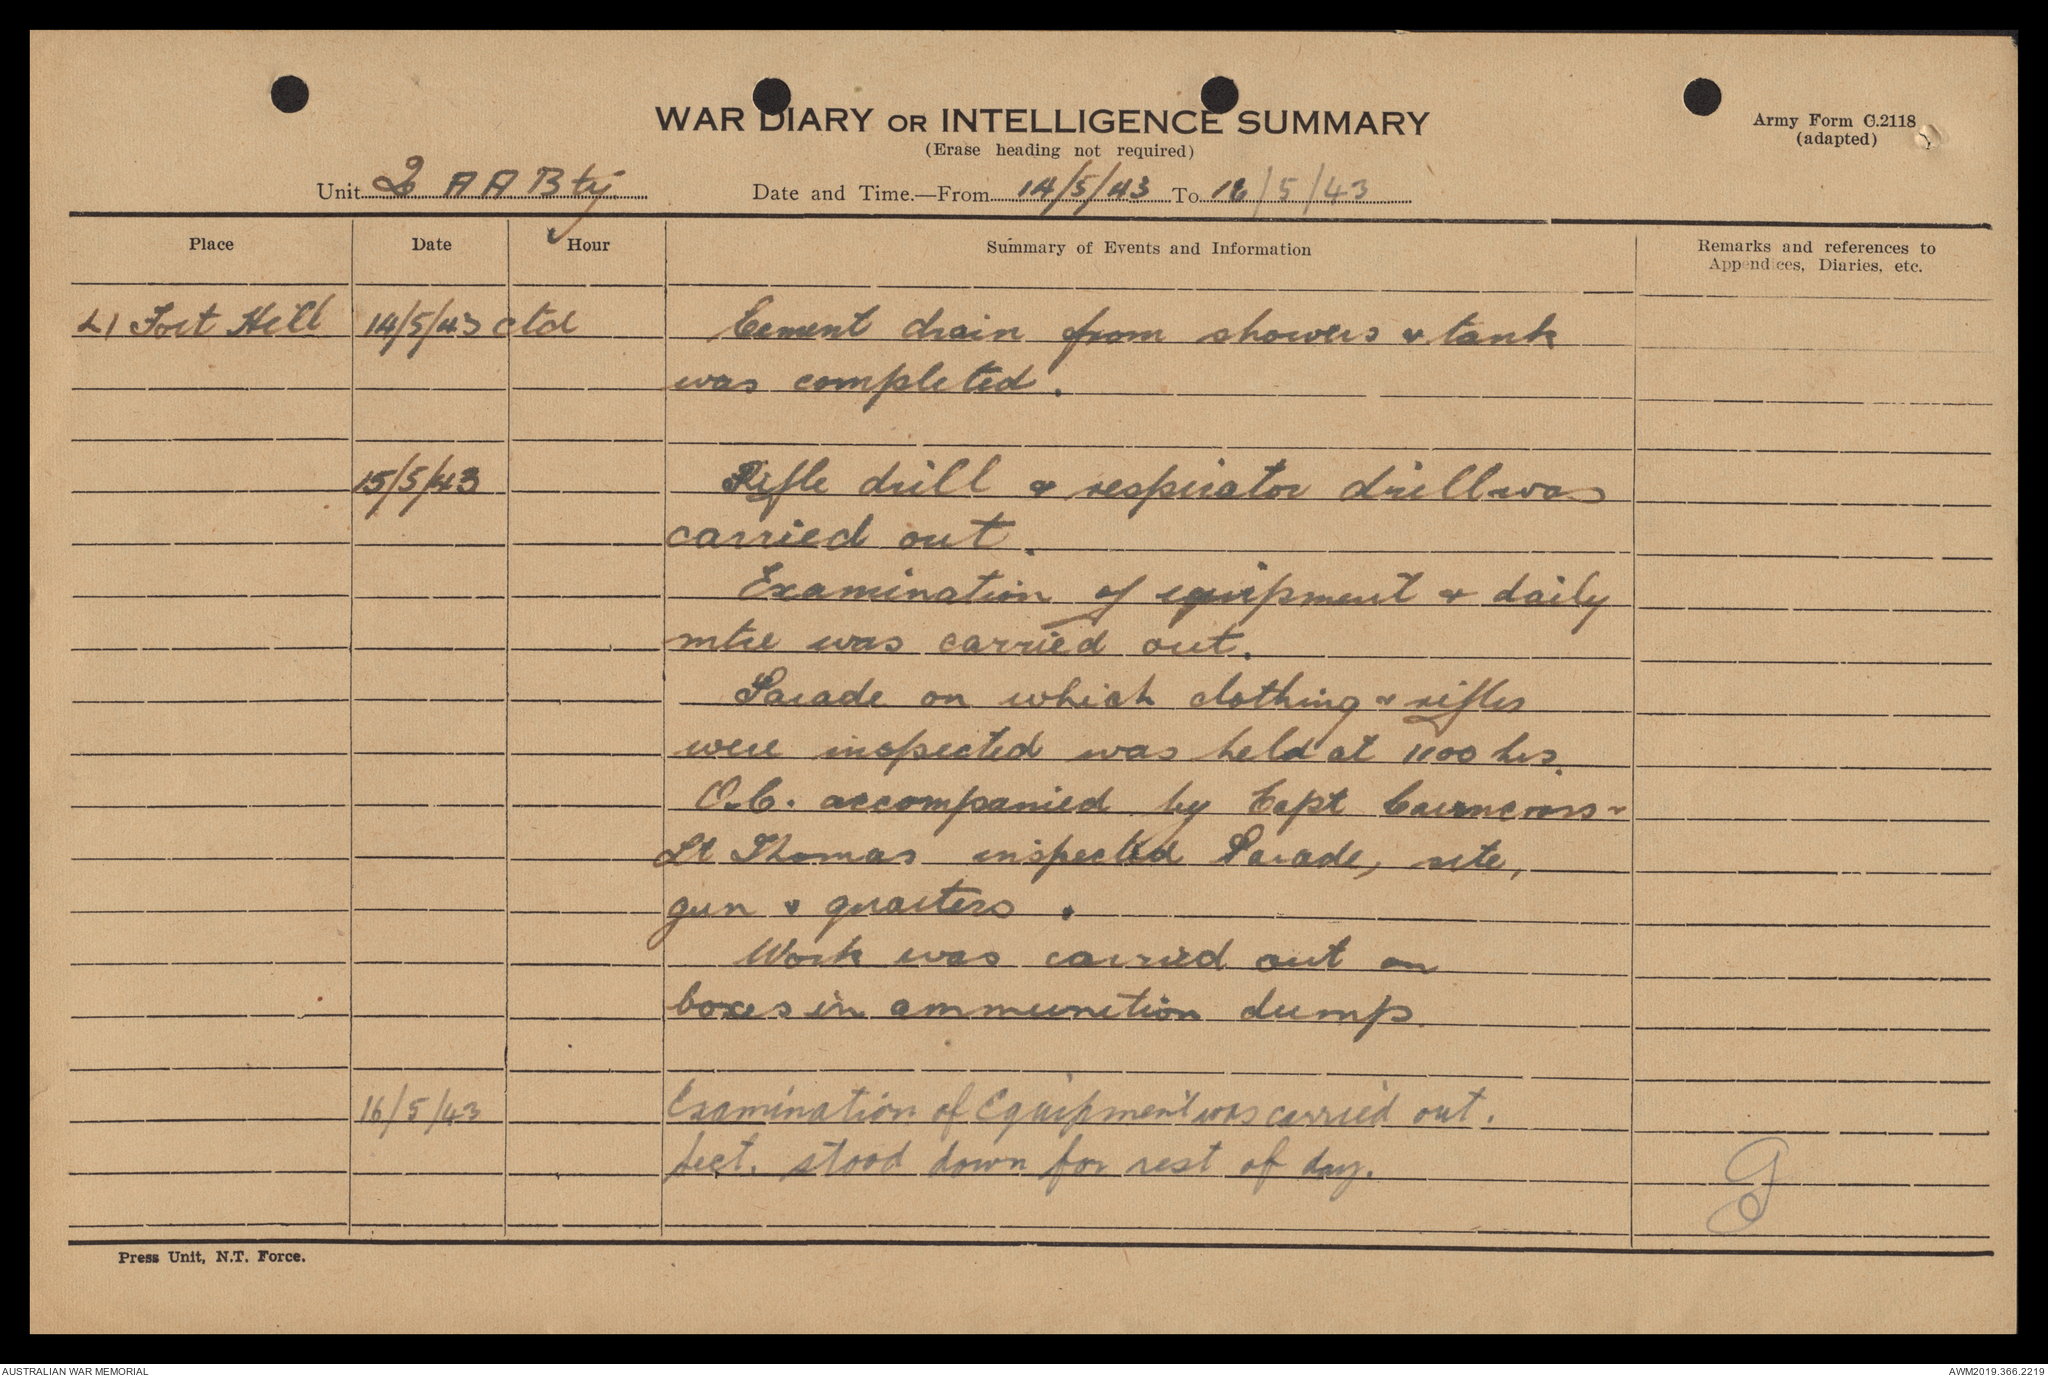 WAR DIARY OR INTELLIGENCE SUMMARY
(Erase heading not required)
Army Form C.2118
(adapted)
Unit 2 AA Bty. Date and Time.—From 14/5/43 To 16/5/43
Place Date Hour Summary of Events and Information Remarks and references to
Appendices, Diaries, etc.
L1 Fort Hill 14/5/43 ctd Cement drain from showers & tank
was completed.
15/5/43 Rifle drill & respirator drill was
carried out.
Examination of equipment & daily
mtce was carried out.
Parade on which clothing & rifles
were inspected was held at 1100 hrs.
O.C. accompanied by Capt Cairncross &
Lt Thomas inspected Parade, site,
gun & quarters.
Work was carried out on
boxes in ammunition dump.
16/5/43 Examination of Equipment was carried out.
Sect. stood down for rest of day.
Press Unit, N.T. Force.
AUSTRALIAN WAR MEMORIAL
AWM2019.366.2219